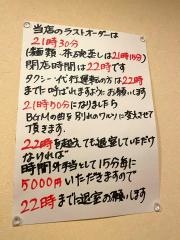 当店のラストオーダーは
21時30分
(麺類・茶碗蒸しは21時15分)
閉店時間は22時です
タクシー・代行運転の方は22時
までに呼ばれますようにお願いします
21時50分になりましたら
BGMの曲を別れのワルツに変えさせて
頂きます。
22時を超えても退室していただけ
なければ
時間外手当として15分毎に
5000円いただきますので
22時までに退室お願いします